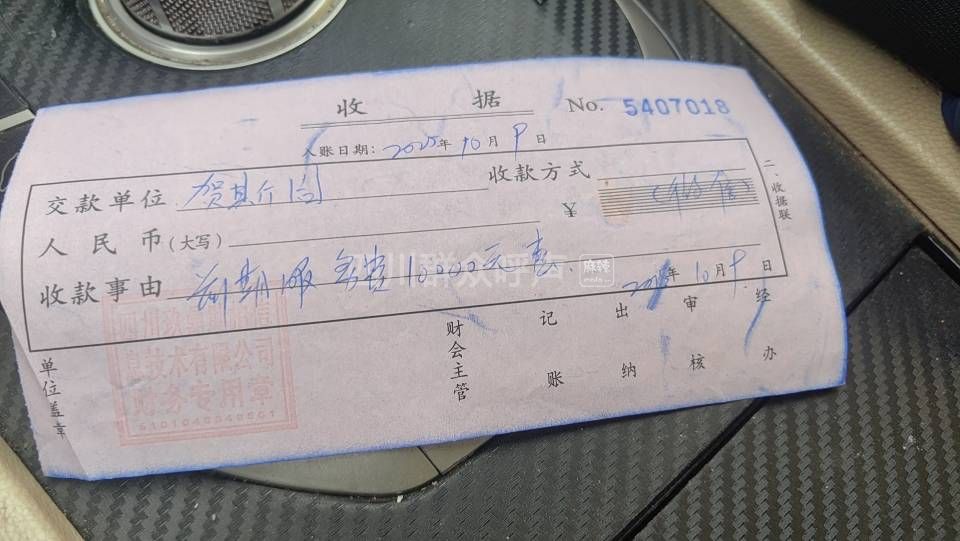 收 据 No. 5407018
入账日期: 2025年 10月 9日
交款单位 贺其 收款方式
人 民 币(大写) ¥ (微信)
收款事由 前期服务费10000元
年 10月 9日
二、收据联
财会主管 记账 出纳 审核 经办
单位盖章
四川
息技术有限公司
财务专用章
四川群众呼声 麻辣